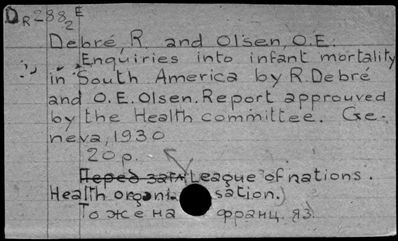 DR-882 E
Debré, R. and Olsen, O.E.
Enquiries into infant mortality
in South America by R. Debré
and O.E. Olsen. Report approuved
by the Health committee. Ge-
neva, 1930
20 p.
Перед загл. League of nations.
Health organi sation.)
То же на франц. яз.